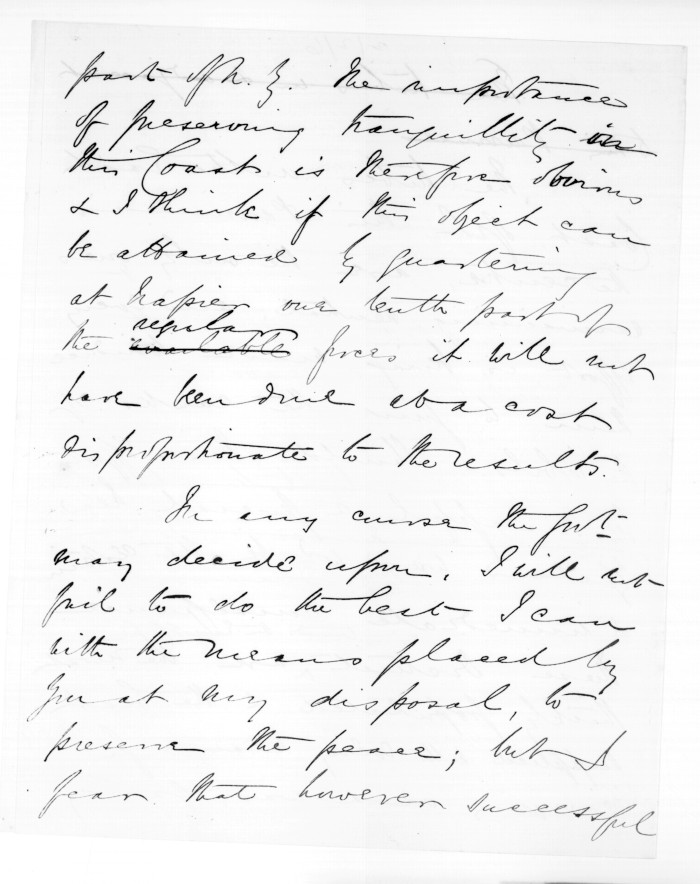 part of N. Z. The importance
of preserving tranquillity in
this Coast is therefore obvious
& I think if this object can
be attained by quartering
at Napier one tenth part of
the regular available forces it will not
have been done at a cost
disproportionate to the results.
In any course the Govt
may decide upon, I will not
fail to do the best I can
with the means placed by
you at my disposal, to
preserve the peace; but I
fear that however successful